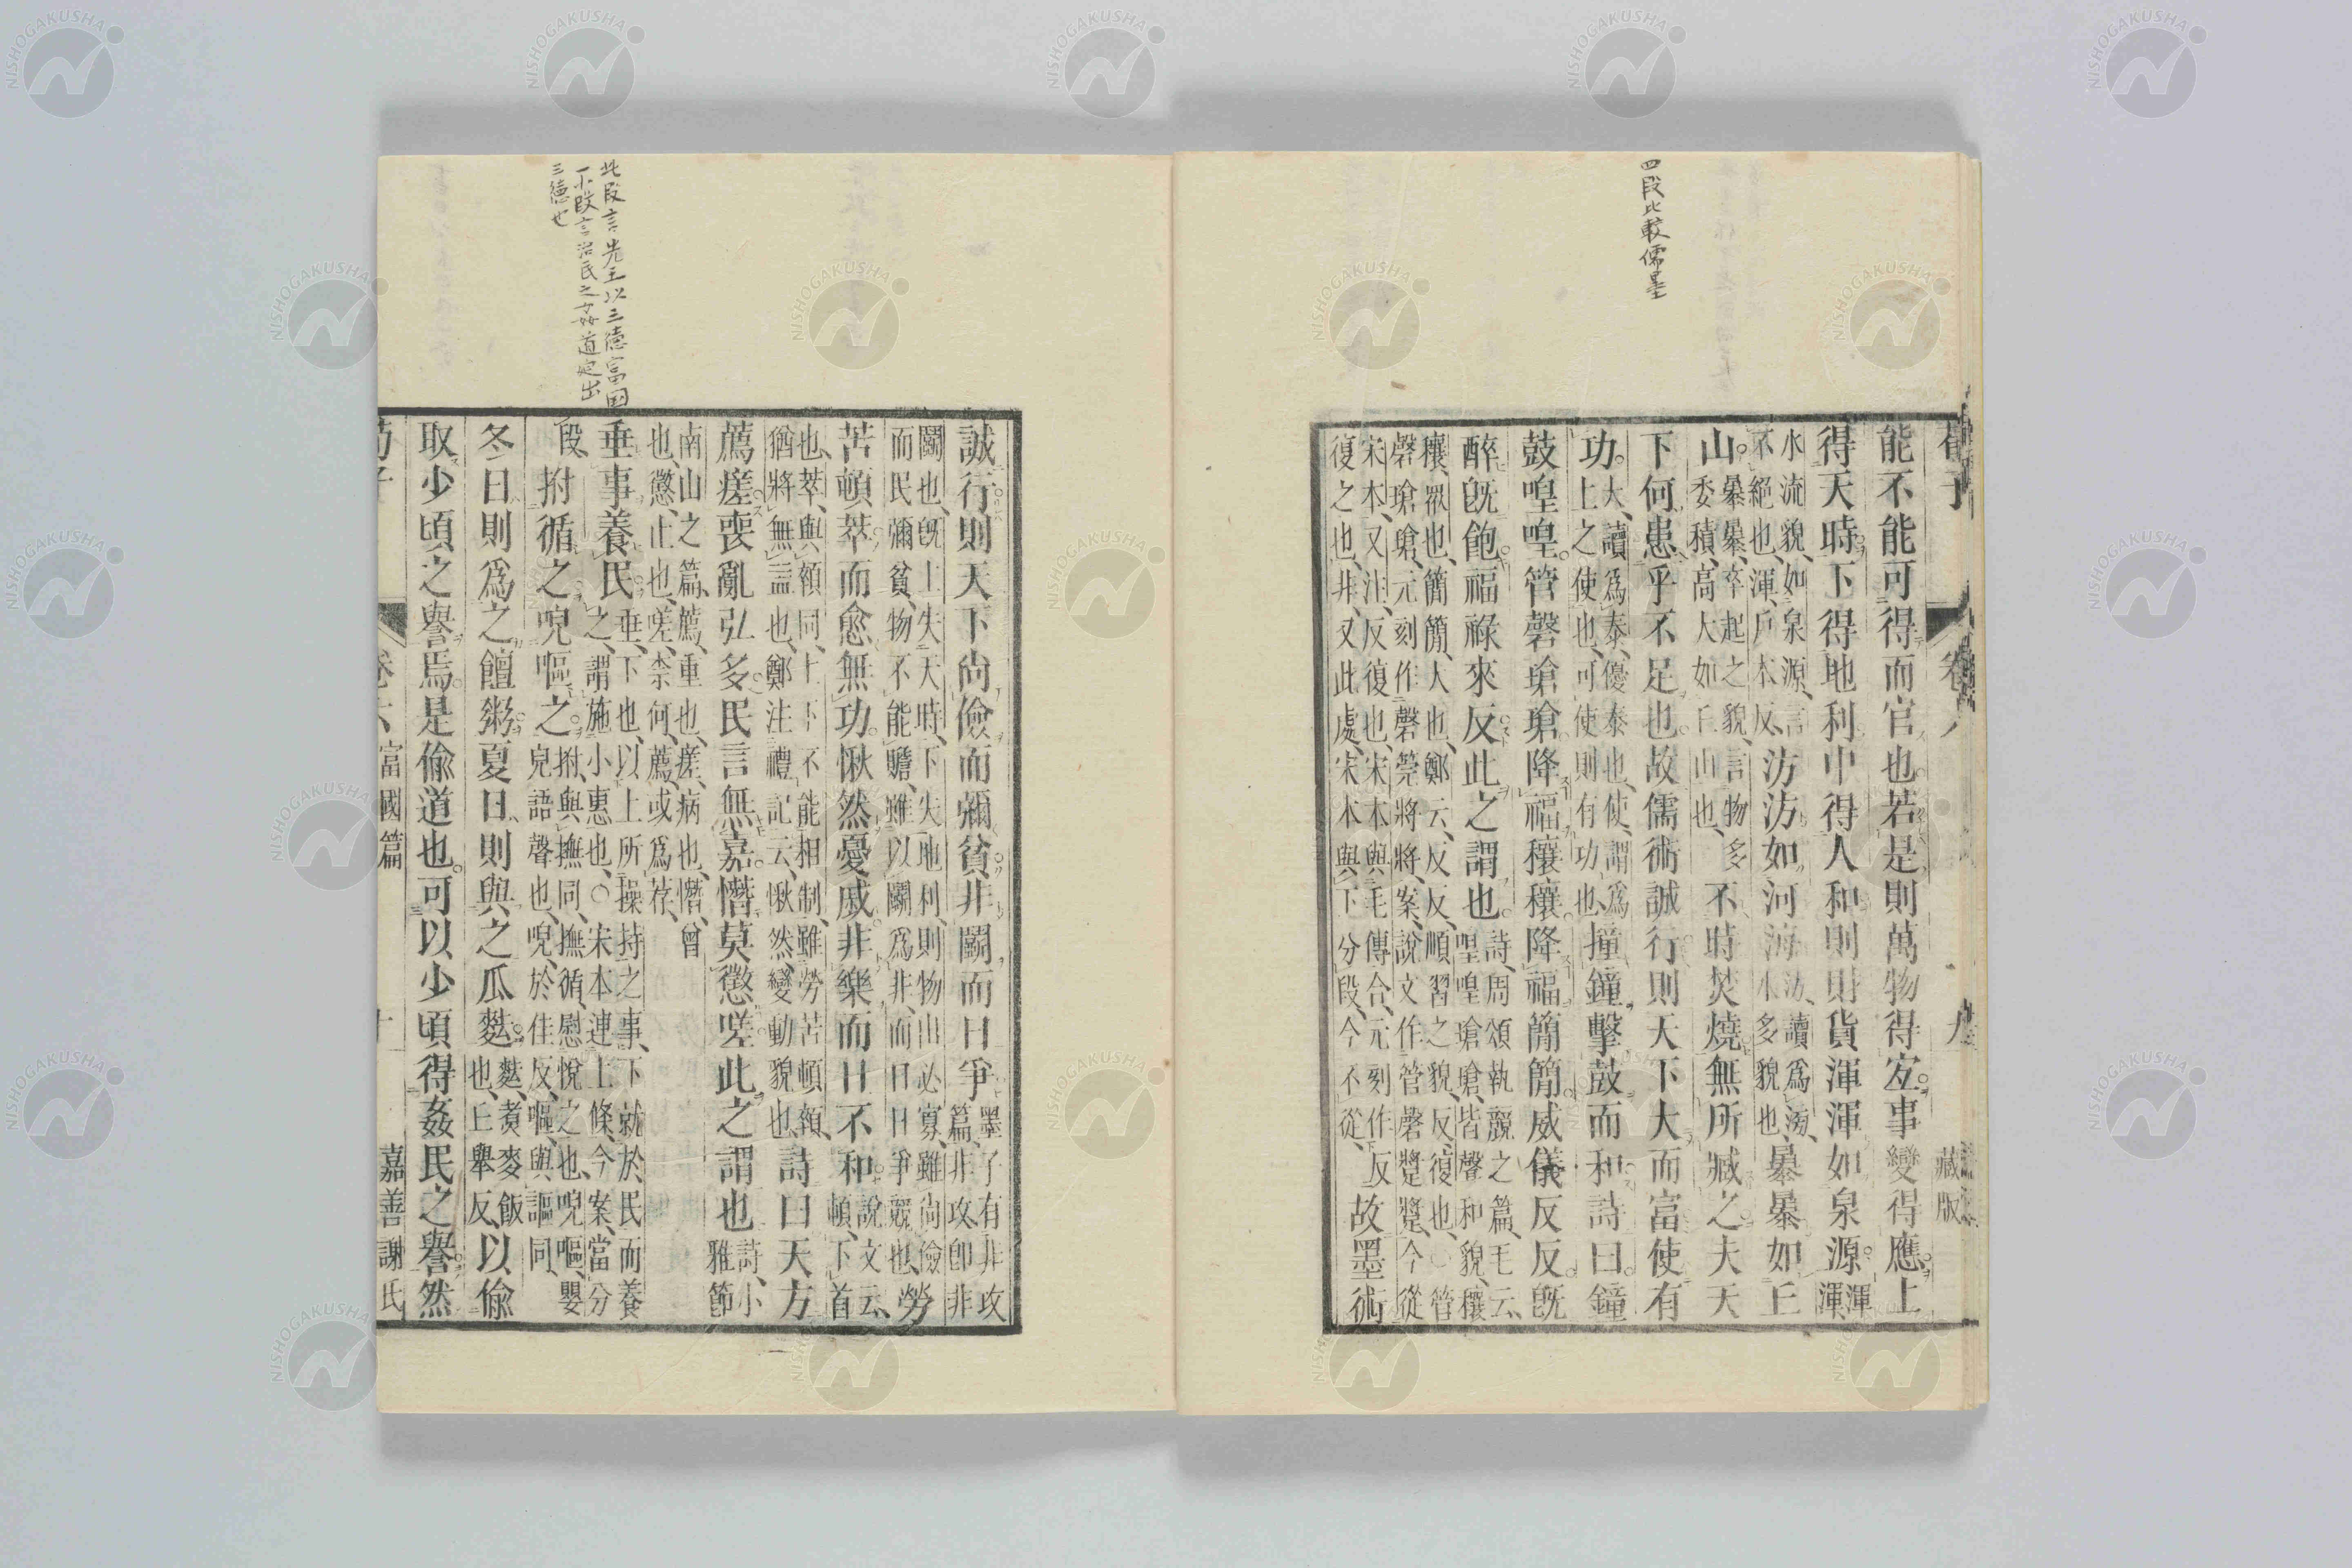 四段比較儒墨
荀子　卷六　九　藏版
能不能可得而官也若是則萬物得宐事變得應上
得天時下得地利中得人和則財貨渾渾如泉源渾渾
水流貌、如泉源、言
不絕也、渾、戶本反、汸汸如河海汸、讀爲滂、
水多貌也、暴暴如丘
山。暴暴、卒起之貌、言物多
委積、高大如丘山也、不時焚燒無所臧之夫天
下何患乎不足也故儒術誠行則天下大而富使有
功。大、讀爲泰、優泰也、使、謂爲
上之使也、可使則有功也、撞鐘擊鼓而和詩曰鐘
鼓喤喤。管磬瑲瑲。降福穰穰。降福簡簡。威儀反反。旣
醉旣飽。福祿來反。此之謂也。詩、周頌執競之篇、毛云、
喤喤瑲瑲、皆聲和貌、穰
穰、眾也、簡簡、大也、鄭云、反反、順習之貌、反、復也、○管
磬瑲瑲、元刻作磬筦將將、案、說文作管磬蹩蹩、今從
宋本、又注、反復也、宋本與毛傳合、元刻作反
復之也、非、又此處、宋本與下分段、今不從、故墨術
此段言先王以三德富国
下段言治民之姦道定出
三德也
誠行則天下尚儉而彌貧非鬭而日爭墨子有非攻
篇、非攻、卽非
鬭也、旣上失天時、下失地利、則物出必寡、雖尚儉
而民彌貧、物不能贍、雖以鬭爲非、而日日爭競也、勞
苦頓萃而愈無功愀然憂戚非樂而日不和說文云、
頓、下首
也、萃、與顇同、上下不能相制、雖勞苦頓顇、
猶將無益也、鄭注禮記云、愀然、變動貌也、詩曰天方
薦瘥。喪亂弘多。民言無嘉。憯莫懲嗟。此之謂也詩、小
雅節
南山之篇、薦、重也、瘥、病也、憯、曾
也、懲、止也、嗟、柰何、薦、或爲荐、
垂事養民、垂、下也、以上所操持之事、下就於民而養
之、謂施小惠也、○宋本連上條、今案、當分
段、拊循之唲嘔之。拊、與撫同、撫循、慰悅之也、唲嘔、嬰
兒語聲也、唲、於佳反、嘔、與謳同、
冬日則爲之饘粥夏日則與之瓜麮麮、煑麥飯
也、丘舉反、以偸
取少頃之譽焉。是偸道也。可以少頃得姦民之譽然
荀子　卷六富國篇　十　嘉善謝氏